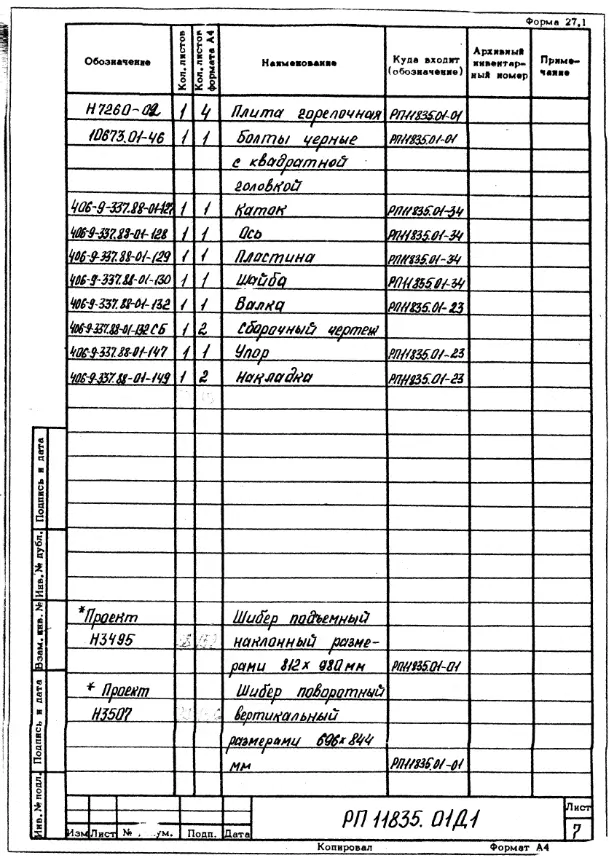 Форма 27,1
Обозначение Кол. листов Кол. листов формата А4 Наименование Куда входит (обозначение) Архивный инвентарный номер Примечание
Н7260-02 1 4 Плита горелочная РП11835.01-01
10673.01-46 1 1 Болты черные РП11835.01-01
с квадратной
головкой
406-9-337.88-01-127 1 1 Каток РП11835.01-34
406-9-337.88-01-128 1 1 Ось РП11835.01-34
406-9-337.88-01-129 1 1 Пластина РП11835.01-34
406-9-337.88-01-130 1 1 Шайба РП11835.01-34
406-9-337.88-01-132 1 1 Валка РП11835.01-23
406-9-337.88-01-132СБ 1 2 Сборочный чертеж
406-9-337.88-01-147 1 1 Упор РП11835.01-23
406-9-337.88-01-149 1 2 Накладка РП11835.01-23
*Проект Шибер подъемный
Н3495 наклонный разме-
рами 812х980мм РП11835.01-01
* Проект Шибер поворотный
Н3507 вертикальный
размерами 696х844
мм РП11835.01-01
Подпись и дата
Инв. № дубл.
Взам. инв. №
Подпись и дата
Инв. № подл.
РП 11835. 01Д1
Лист
7
Изм Лист № ум. Подп. Дата
Копировал Формат А4